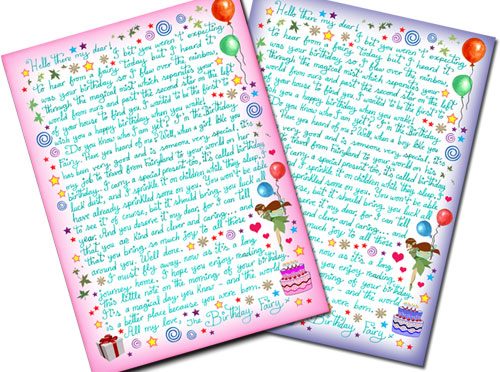 Hello there my dear! I bet you weren't expecting
to hear from a fairy today, but I heard it
was your birthday, so I flew over the rainbow,
through the magical mist which separates your
world from ours and past the second star on the left
of your house to find you. I wanted to be the first to
wish you a happy birthday when you woke!
Do you know who I am yet? I'm the Birthday
Fairy. Have you heard of me? Well, when a girl like you
has been very good and is someone very special, it's
my job to travel from Fairyland to your world on
Birthday. I carry a special present too, it's called birthday
dust, and I sprinkle it on children while they sleep. I
have already sprinkled some on you. You won't be able to
see it of course, but it should bring you luck all
year. And you deserve it my dear, for I can tell
that you are kind and clever and caring, and
that you bring so much joy to all those
around you. Well done. I must fly away now as it's a long
journey home. I hope you enjoy reading
this little note on the morning of your birthday.
It's a magical day you know... and the world
is a better place because you were born.
All my love, The Birthday Fairy.
Hello there my dear! I bet you weren't expecting
to hear from a fairy today, but I heard it
was your birthday, so I flew over the rainbow,
through the magical mist which separates your
and past the second star on the left
to find you. I wanted to be the first to
a happy birthday when you woke!
know who I am yet? I'm the Birthday
you heard of me? Well, when a boy like you
good and is someone very special, it's
travel from Fairyland to your world on
carry a special present too, it's called birthday
sprinkle it on children while they sleep. I
sprinkled some on you. You won't be able to
but it should bring you luck all
deserve it my dear, for I can tell
kind and clever and caring, and
so much joy to all those
I must fly away now as it's a long
I hope you enjoy reading
on the morning of your birthday.
you know... and the world
because you were born.
The Birthday Fairy.